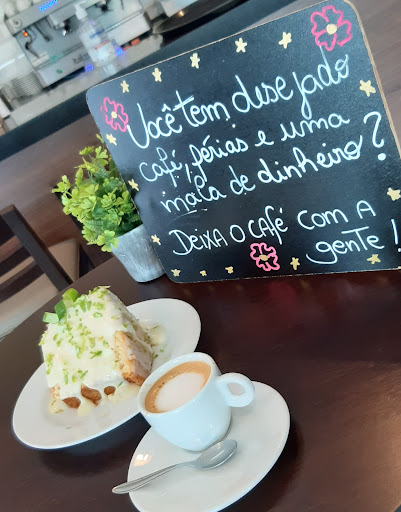 Você tem desejado
café, férias e uma
mala de dinheiro?
DEIXA O CAFÉ COM A
gente!